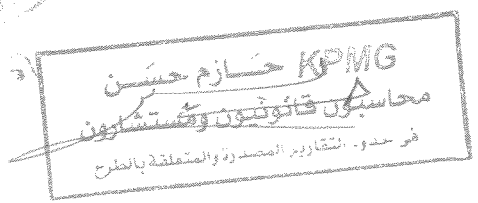 KPMG حازم حسن
محاسبون قانونيون ومستشارون
فى حدود التقارير المصدرة والمتعلقة بالطرح